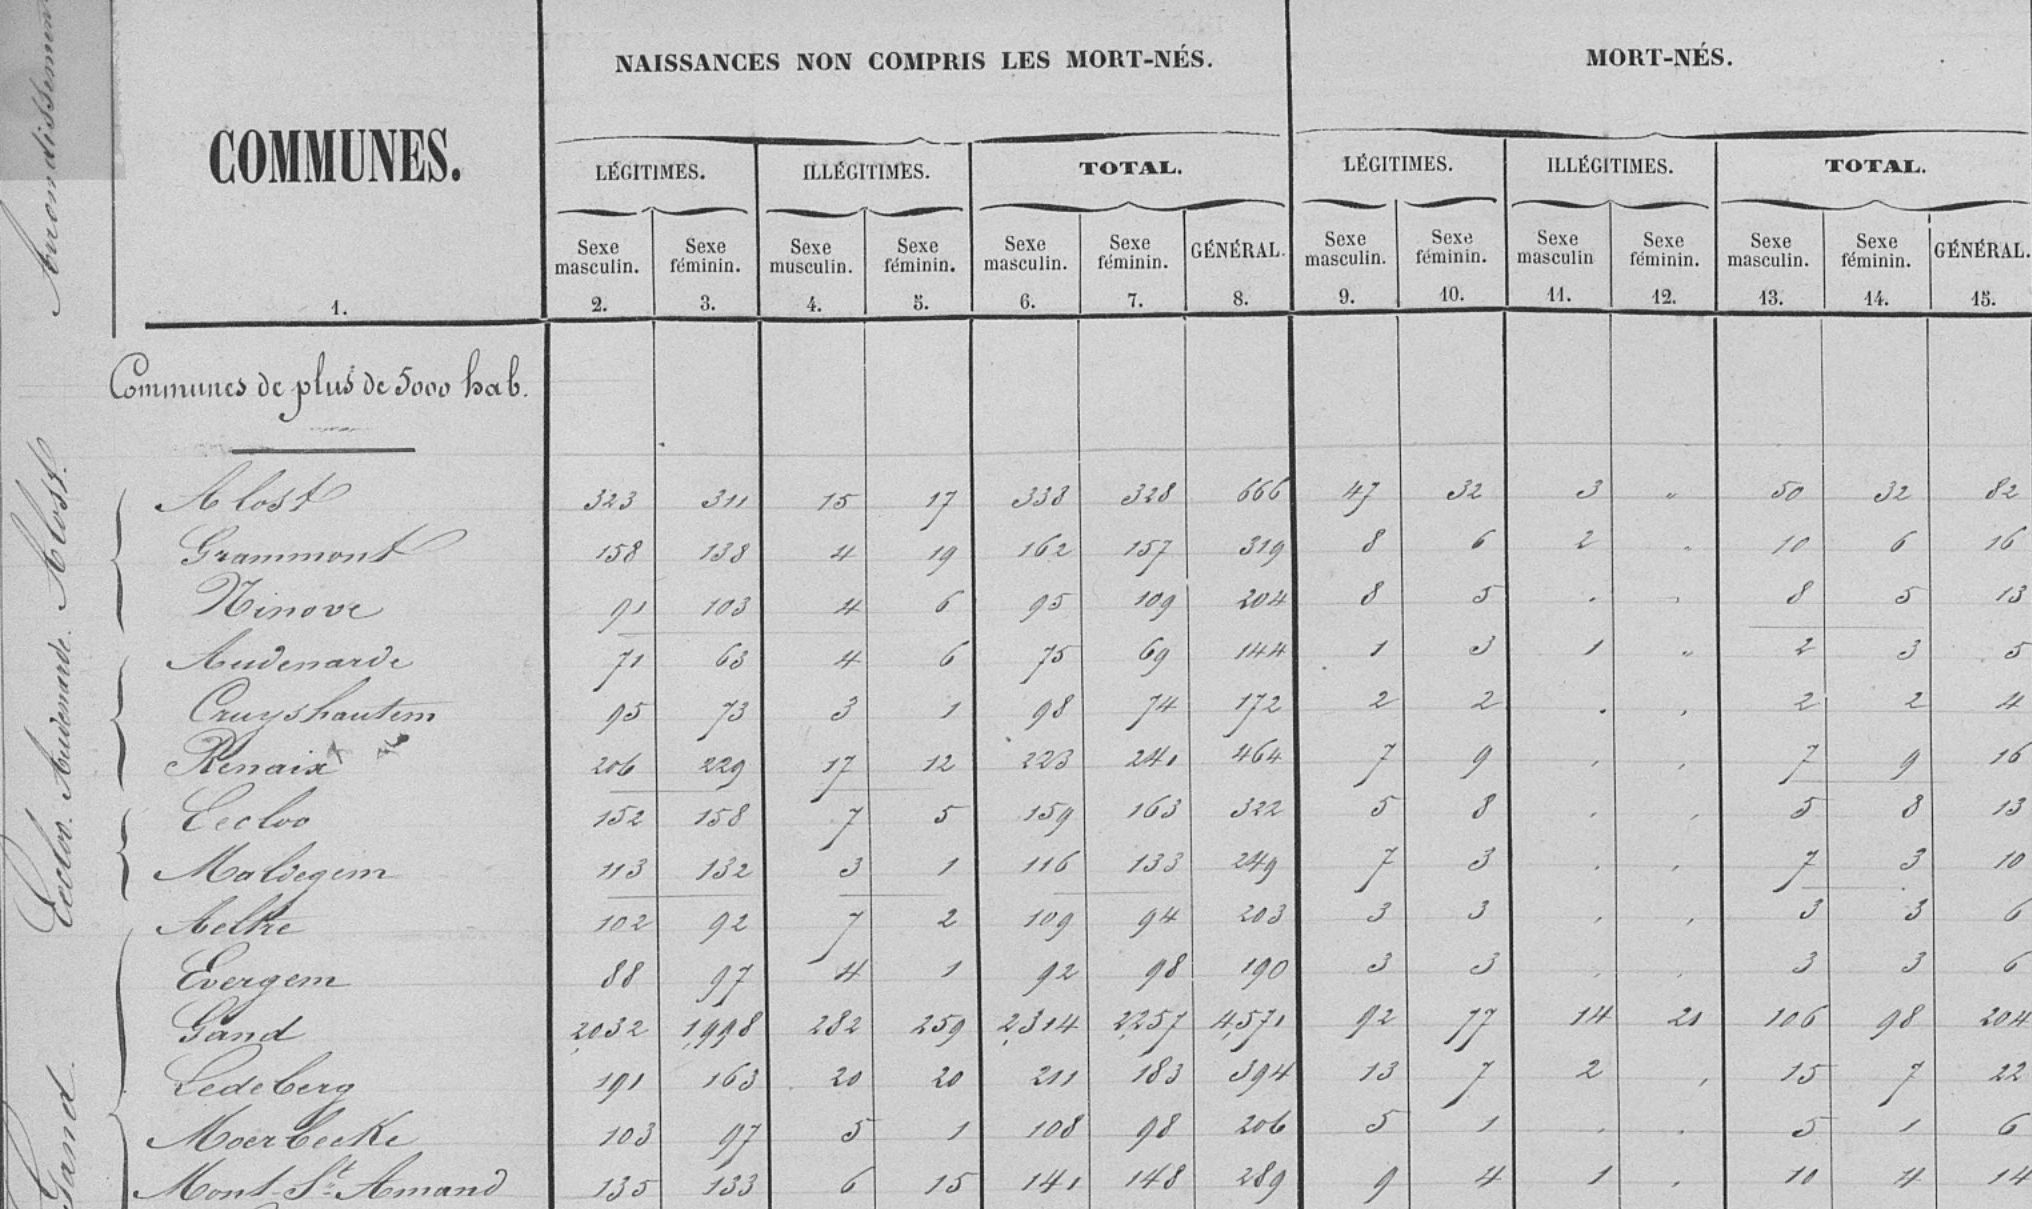 NAISSANCES NON COMPRIS LES MORT-NÉS. MORT-NÉS.
COMMUNES.
LÉGITIMES. ILLÉGITIMES. TOTAL. LÉGITIMES. ILLÉGITIMES. TOTAL.
Sexe masculin. Sexe féminin. Sexe musculin. Sexe féminin. Sexe masculin. Sexe féminin. GÉNÉRAL. Sexe masculin. Sexe féminin. Sexe masculin Sexe féminin. Sexe masculin. Sexe féminin. GÉNÉRAL.
1. 2. 3. 4. 5. 6. 7. 8. 9. 10. 11. 12. 13. 14. 15.
Arrondissement
Communes de plus de 5000 hab.
Alost.
Alost 323 311 15 17 338 328 666 47 32 3 " 50 32 82
Grammont 158 138 4 19 162 157 319 8 6 2 . 10 6 16
Ninove 91 103 4 6 95 109 204 8 5 . . 8 5 13
Audenarde.
Audenarde 71 63 4 6 75 69 144 1 3 1 " 2 3 5
Cruyshautem 95 73 3 1 98 74 172 2 2 . . 2 2 4
Renaix 206 229 17 12 223 241 464 7 9 . . 7 9 16
Eecloo.
Eecloo 152 158 7 5 159 163 322 5 8 . . 5 8 13
Maldegem 113 132 3 1 116 133 249 7 3 . . 7 3 10
Gand
Aeltre 102 92 7 2 109 94 203 3 3 . . 3 3 6
Evergem 88 97 4 1 92 98 190 3 3 . . 3 3 6
Gand 2,032 1,998 282 259 2,314 2,257 4,571 92 77 14 21 106 98 204
Ledeberg 191 163 20 20 211 183 394 13 7 2 . 15 7 22
Moerbeeke 103 97 5 1 108 98 206 5 1 . . 5 1 6
Mont-St-Amand 135 133 6 15 141 148 289 9 4 1 . 10 4 14